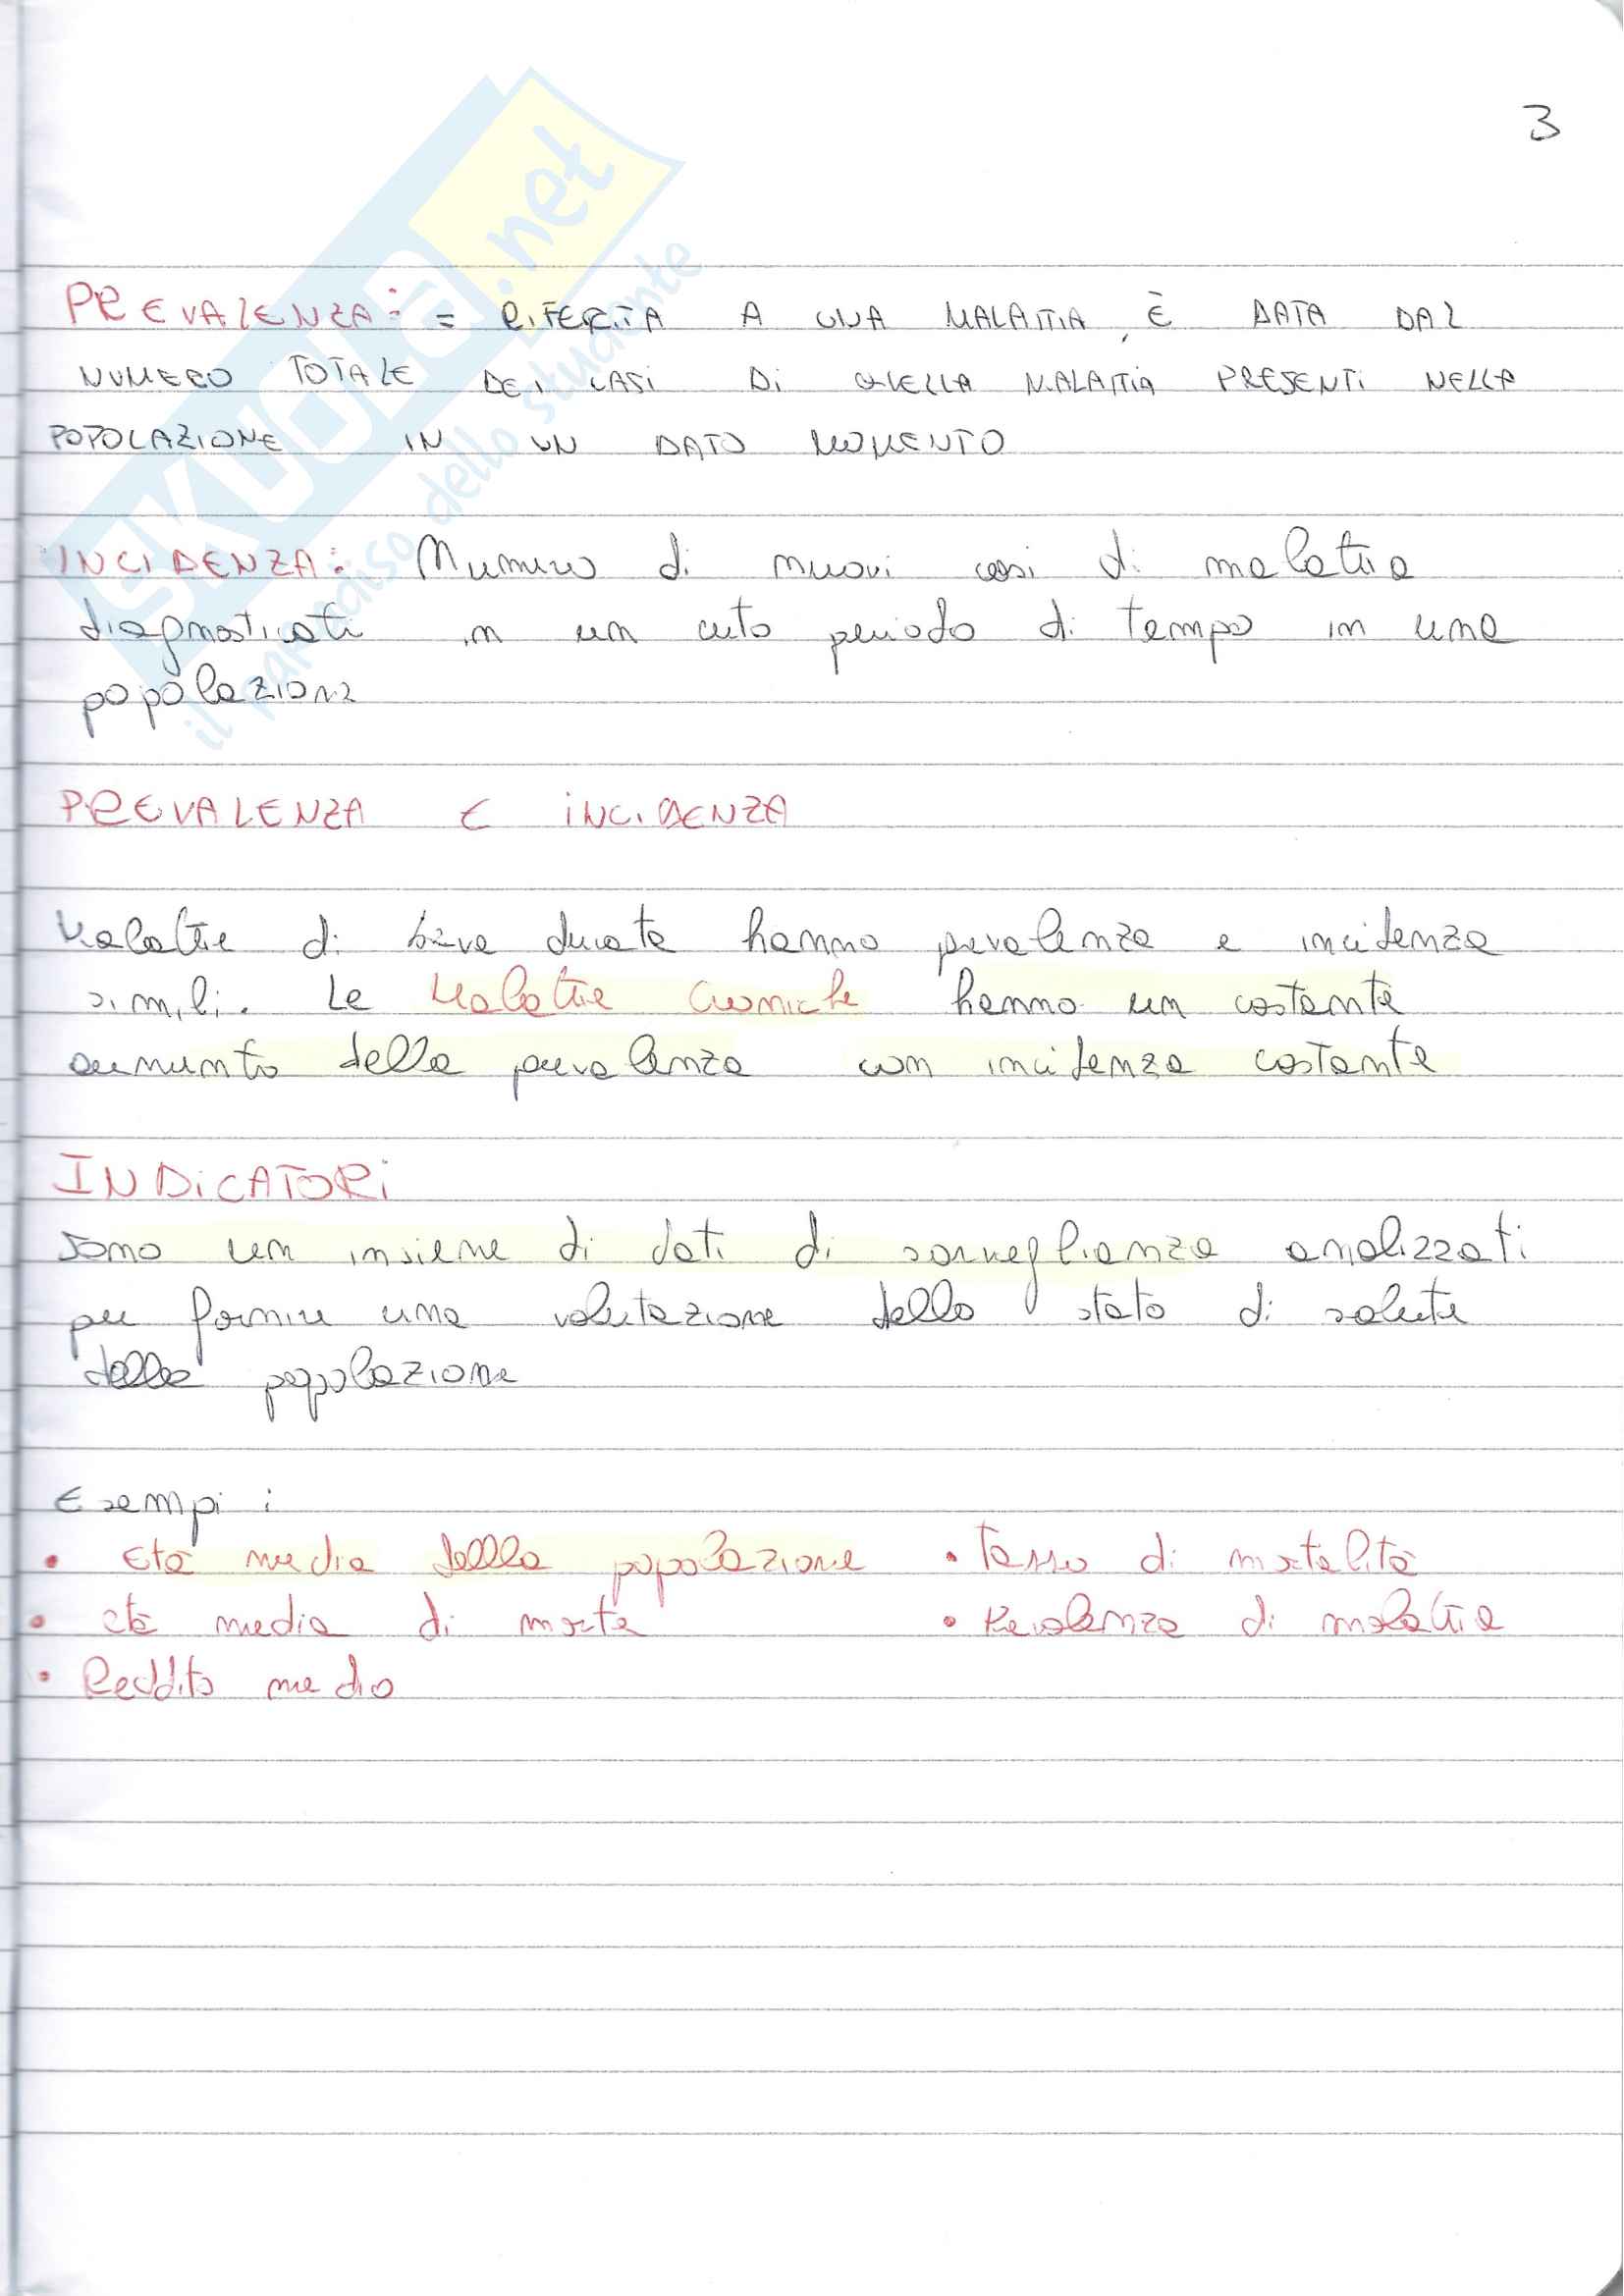 3
PREVALENZA: = RIFERITA A UNA MALATTIA, È DATA DAL
NUMERO TOTALE DEI CASI DI QUELLA MALATTIA PRESENTI NELLA
POPOLAZIONE IN UN DATO MOMENTO
INCIDENZA: Numero di nuovi casi di malattia
diagnosticati in un certo periodo di tempo in una
popolazione
PREVALENZA E INCIDENZA
Malattie di breve durata hanno prevalenza e incidenza
simili. Le Malattie Croniche hanno un costante
aumento della prevalenza con incidenza costante
INDICATORI
sono un insieme di dati di sorveglianza analizzati
per fornire una valutazione dello stato di salute
della popolazione
Esempi:
• Età media dellla popolazione • Tasso di mortalità
• età media di morte • Prevalenza di malattia
• Reddito medio
SKUOLA.net
il paradiso dello studente